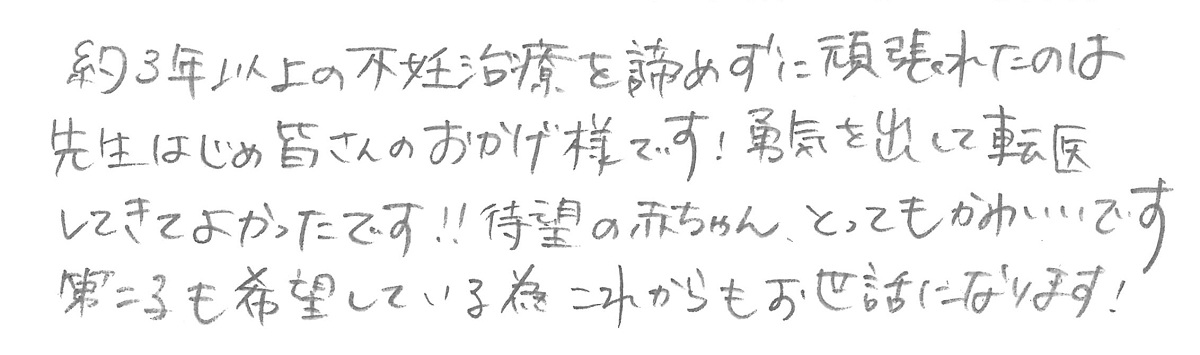 約3年以上の不妊治療を諦めずに頑張れたのは
先生はじめ皆さんのおかげ様です！勇気を出して転医
してきてよかったです！！待望の赤ちゃん、とってもかわいいです
第二子も希望している為これからもお世話になります！